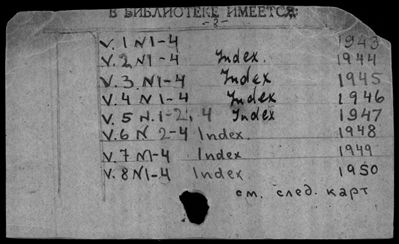 В БИБЛИОТЕКЕ ИМЕЕТСЯ:
-2-
V. 1 N 1-4 1943
V. 2 N 1-4 Index. 1944
V. 3 N 1-4 Index 1945
V. 4 N 1-4 Index 1946
V. 5 N. 1-2, 4 Index 1947
V. 6 N 2-4 Index. 1948
V. 7 N 1-4 Index 1949
V. 8 N 1-4 Index 1950
см. след. карт